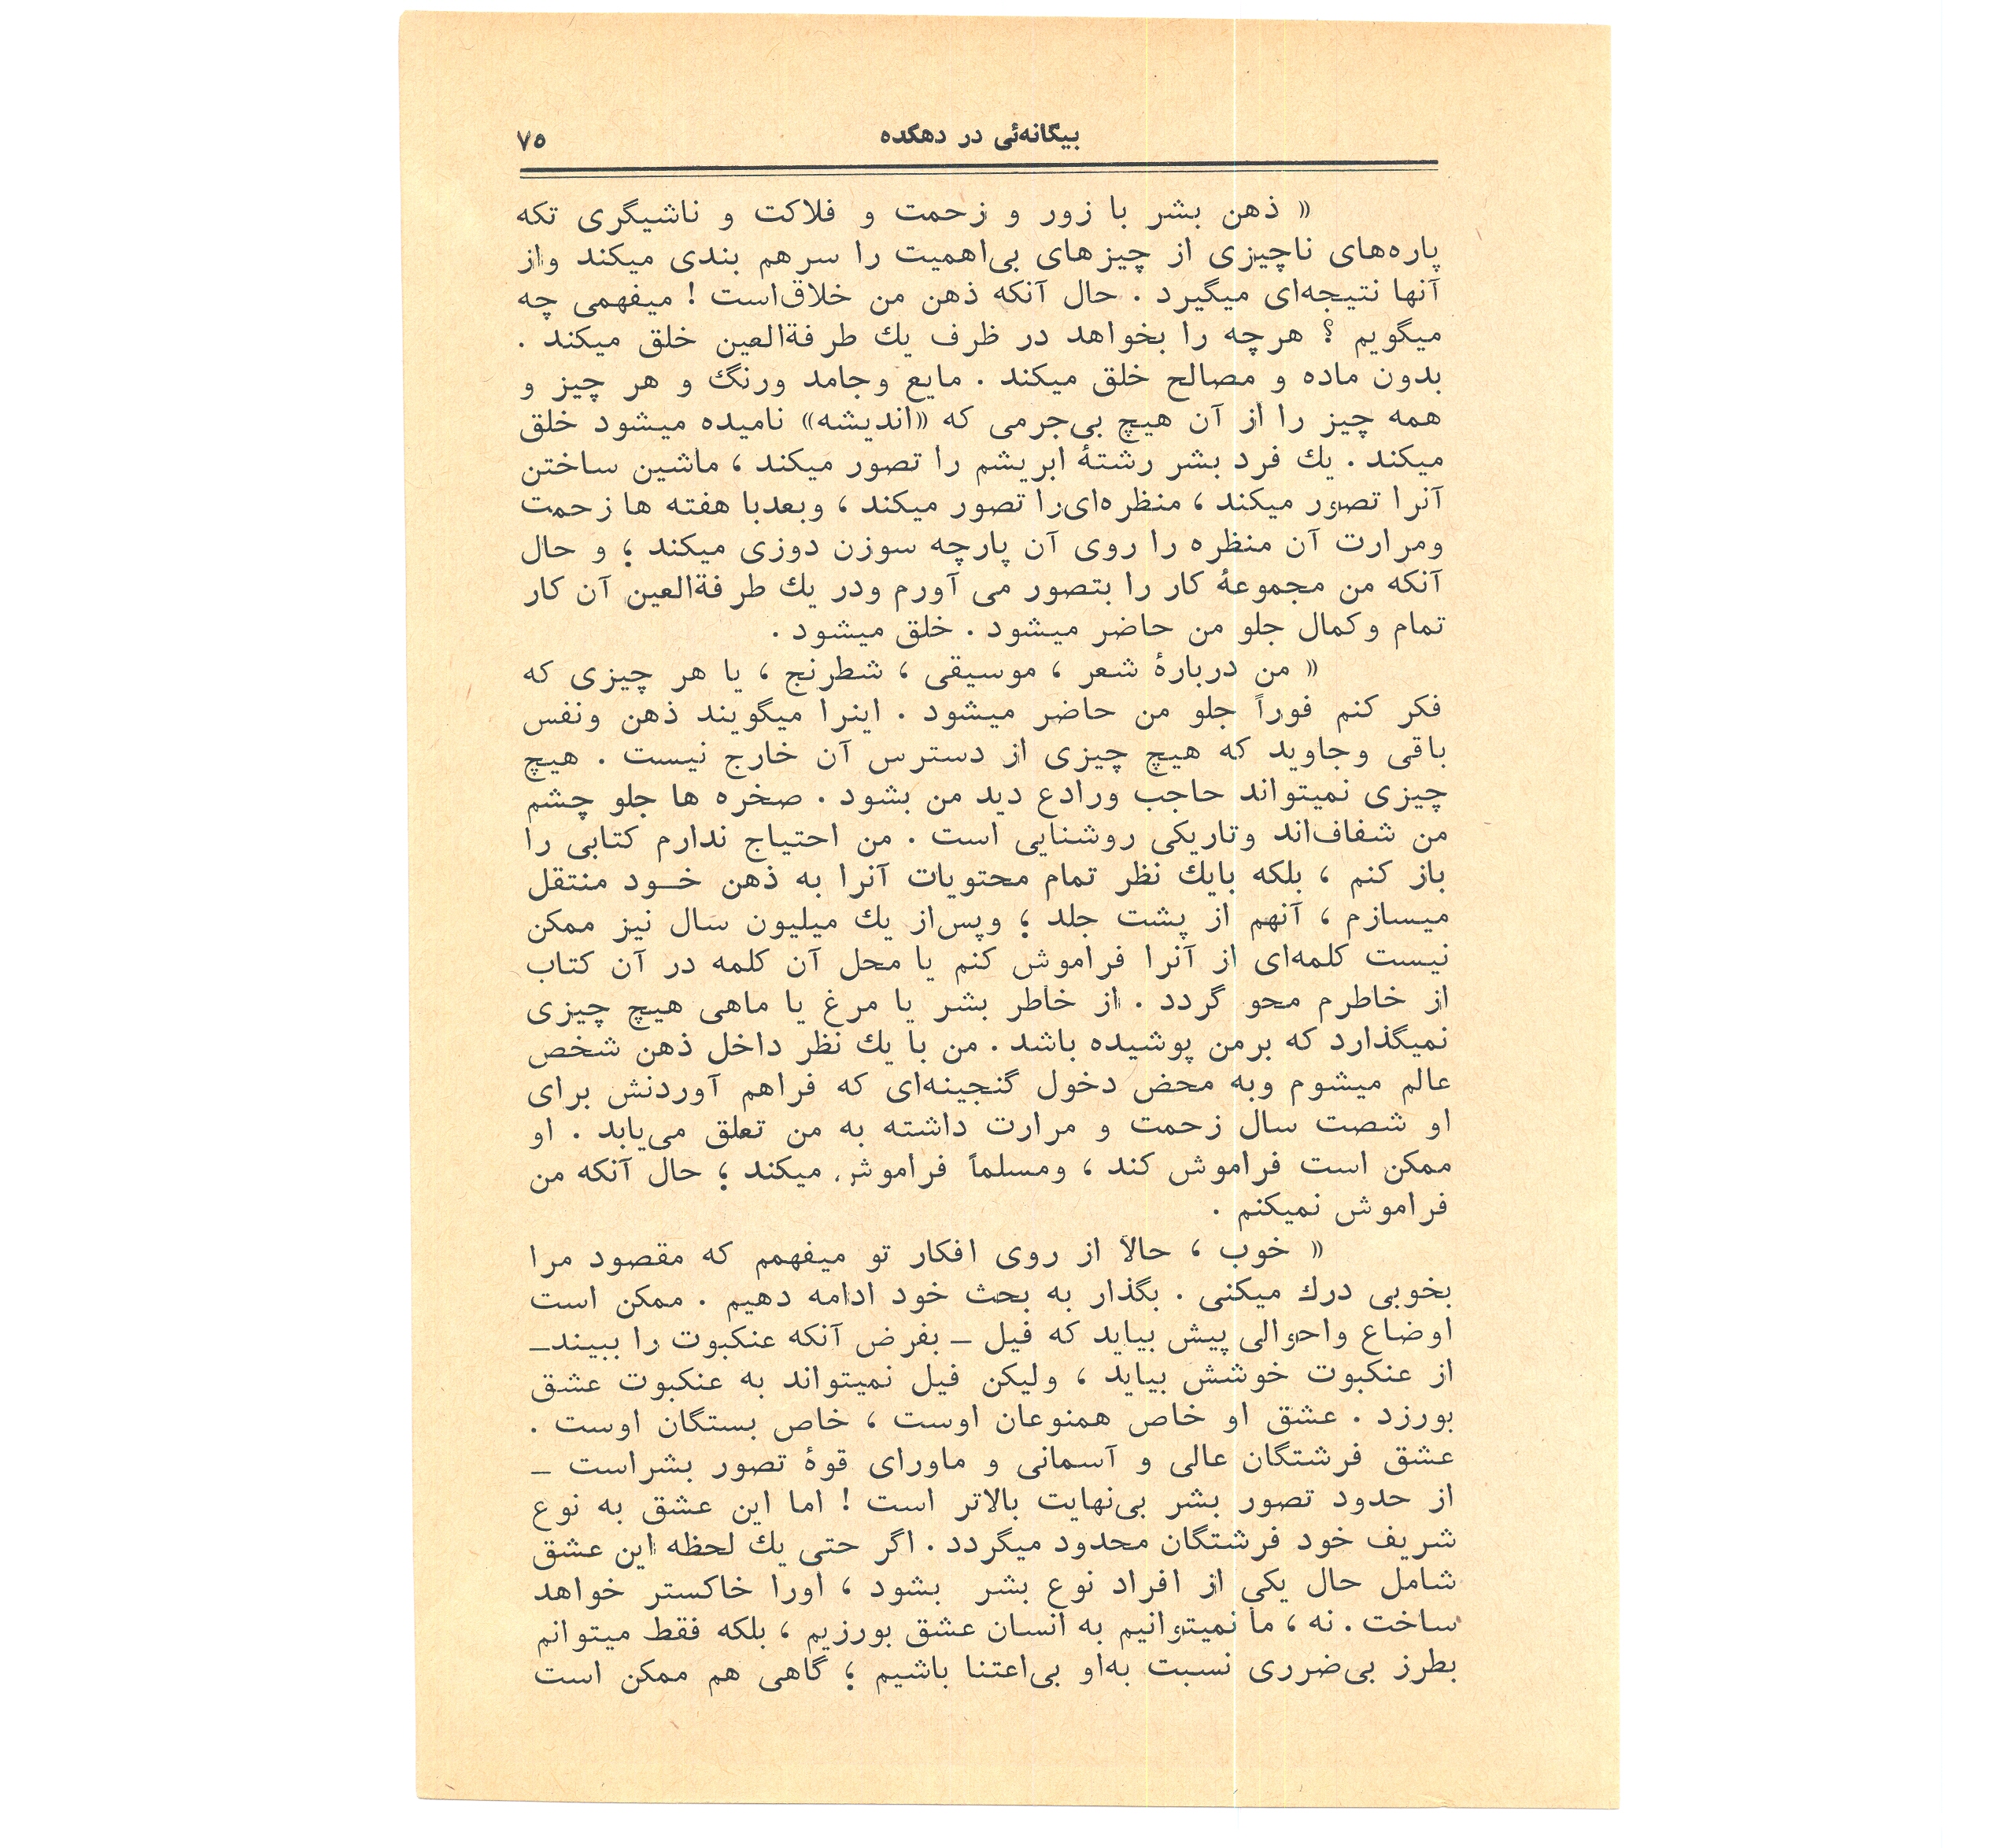 بیگانه‌ئی در دهکده ۷۵
« ذهن بشر با زور و زحمت و فلاکت و ناشیگری تکه
پاره‌های ناچیزی از چیزهای بی‌اهمیت را سرهم بندی میکند واز
آنها نتیجه‌ای میگیرد . حال آنکه ذهن من خلاق‌است ! میفهمی چه
میگویم ؟ هرچه را بخواهد در ظرف یك طرفةالعین خلق میکند .
بدون ماده و مصالح خلق میکند . مایع وجامد ورنگ و هر چیز و
همه چیز را از آن هیچ بی‌جرمی که «اندیشه» نامیده میشود خلق
میکند . یك فرد بشر رشتهٔ ابریشم را تصور میکند ، ماشین ساختن
آنرا تصور میکند ، منظره‌ای‌را تصور میکند ، وبعدبا هفته ها زحمت
ومرارت آن منظره را روی آن پارچه سوزن دوزی میکند ؛ و حال
آنکه من مجموعهٔ کار را بتصور می آورم ودر یك طرفةالعین آن کار
تمام وکمال جلو من حاضر میشود . خلق میشود .
« من دربارهٔ شعر ، موسیقی ، شطرنج ، یا هر چیزی که
فکر کنم فوراً جلو من حاضر میشود . اینرا میگویند ذهن ونفس
باقی وجاوید که هیچ چیزی از دسترس آن خارج نیست . هیچ
چیزی نمیتواند حاجب ورادع دید من بشود . صخره ها جلو چشم
من شفاف‌اند وتاریکی روشنایی است . من احتیاج ندارم کتابی را
باز کنم ، بلکه بایك نظر تمام محتویات آنرا به ذهن خـود منتقل
میسازم ، آنهم از پشت جلد ؛ وپس‌از یك میلیون سال نیز ممکن
نیست کلمه‌ای از آنرا فراموش کنم یا محل آن کلمه در آن کتاب
از خاطرم محو گردد . از خاطر بشر یا مرغ یا ماهی هیچ چیزی
نمیگذارد که برمن پوشیده باشد . من با یك نظر داخل ذهن شخص
عالم میشوم وبه محض دخول گنجینه‌ای که فراهم آوردنش برای
او شصت سال زحمت و مرارت داشته به من تعلق می‌یابد . او
ممکن است فراموش کند ، ومسلماً فراموش میکند ؛ حال آنکه من
فراموش نمیکنم .
« خوب ، حالا از روی افکار تو میفهمم که مقصود مرا
بخوبی درك میکنی . بگذار به بحث خود ادامه دهیم . ممکن است
اوضاع واحوالی پیش بیاید که فیل ـ بفرض آنکه عنکبوت را ببیندـ
از عنکبوت خوشش بیاید ، ولیکن فیل نمیتواند به عنکبوت عشق
بورزد . عشق او خاص همنوعان اوست ، خاص بستگان اوست .
عشق فرشتگان عالی و آسمانی و ماورای قوهٔ تصور بشراست ـ
از حدود تصور بشر بی‌نهایت بالاتر است ! اما این عشق به نوع
شریف خود فرشتگان محدود میگردد . اگر حتی یك لحظه این عشق
شامل حال یکی از افراد نوع بشر بشود ، اورا خاکستر خواهد
ساخت . نه ، ما نمیتوانیم به انسان عشق بورزیم ، بلکه فقط میتوانم
بطرز بی‌ضرری نسبت به‌او بی‌اعتنا باشیم ؛ گاهی هم ممکن است